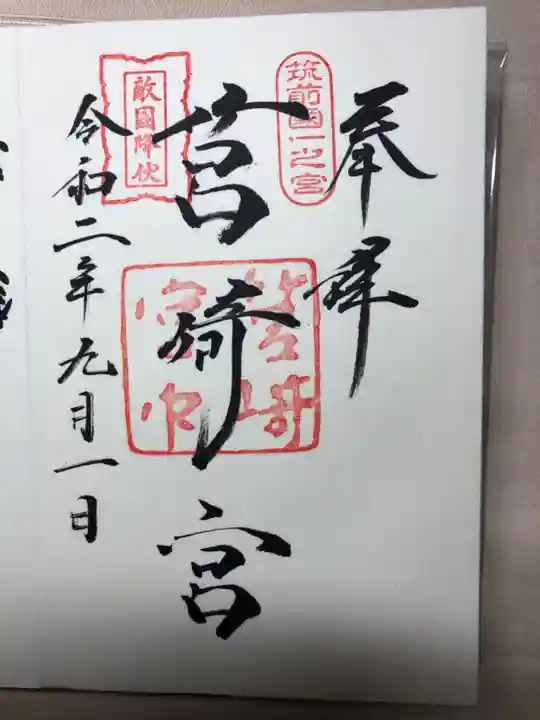 奉拝
筑前國一之宮
筥崎宮
筥崎宮印
敵國降伏
令和二年九月一日